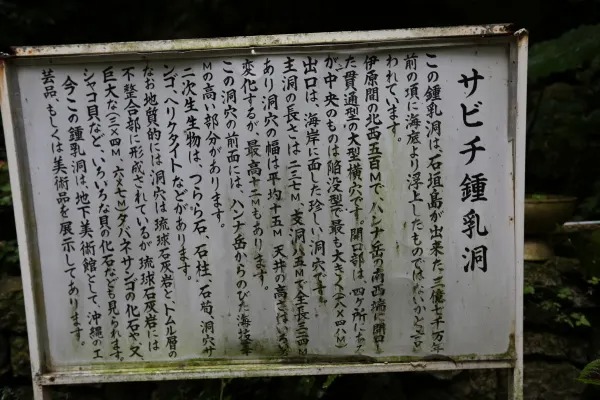 サビチ鍾乳洞
この鍾乳洞は、石垣島が出来た三億七千万年
前の頃に海底より浮上したものではないかと言
われています。
伊原間の北西五百Mで、ハンナ岳の南西端に開口
た貫通型の大型横穴です。開口部は、四ヶ所にあ
が中央のものは陥没型で最も大きく
出口は、海岸に面した珍しい洞穴です。
主洞の長さは二三七M、支洞 五Mで全長三二四M
あり洞穴の幅は平均十五M、天井の高さは
変化するが、最高十二Mもあります。
この洞穴の前面には、ハンナ岳からのびた海抜
Mの高い部分があります。
二次生生物は、つらら石、石柱、石筍、洞穴サ
ンゴ、ヘリクタイトなどがあります。
なお地質的には洞穴は琉球石灰岩と、トムル層の
不整合部に形成されているが琉球石灰岩には
巨大な(三×四M、六×七M)タバネサンゴの化石や、又
シャコ貝など、いろいろな貝の化石なども見られます。
今この鍾乳洞は、地下美術館として、沖縄の工
芸品、もしくは美術品を展示してあります。